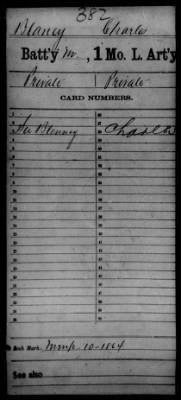 382
Blaney Charles
Batt'y M, 1 Mo. L. Art'y
Private Private
CARD NUMBERS.
Blenney Charles
Book Mark:
10-1864
See also